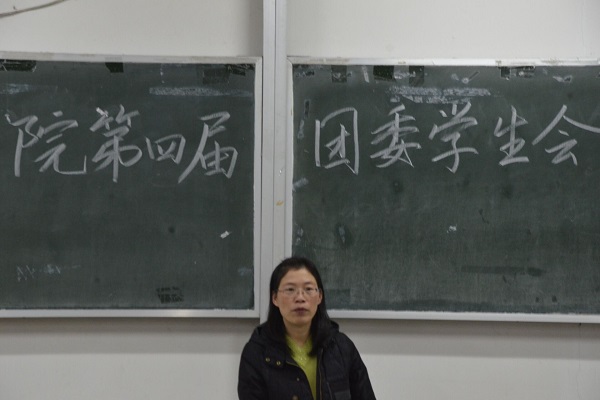 院第四届 团委学生会